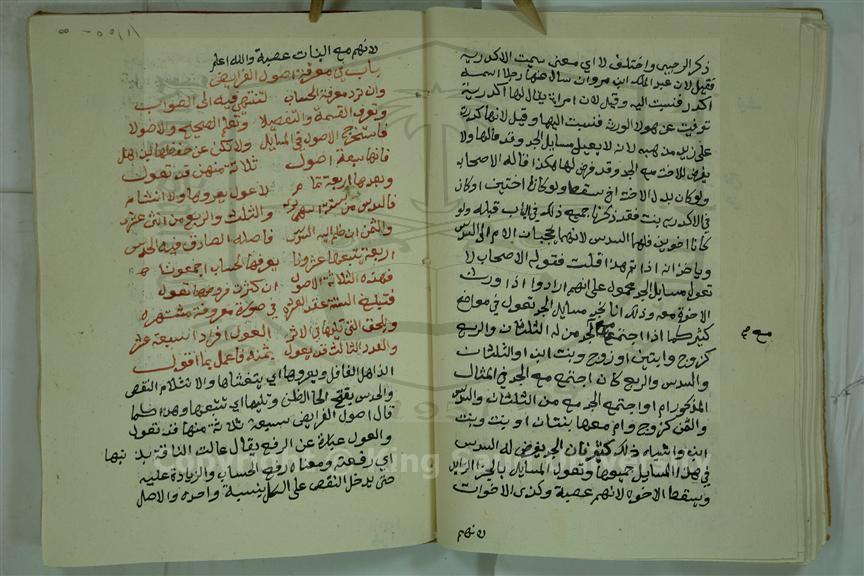 ذكر الرحبي واختلف لاي معنى سميت الاكدرية
فقيل لان عبد الملك ابن مروان سال عنها رجلا اسمه
اكدر فنسبت اليه وقيل لان امراة يقال لها اكدرية
توفيت عن هولا الورثة فنسبت اليها وقيل لانها كدرت
على زيد مذهبه لانه لا يعيل مسايل الجد وقد عالها ولا
يفرض للاخت مع الجد وقد فرض لها هكذا قاله الاصحاب
ولو كان بدل الاخت اخ سقط ولو كانا اختين او كان
في الاكدرية بنت فقد ذكرنا جميع ذلك في الباب قبله ولو
كانا اخوين فلها السدس لانهما يحجبان الام الى السدس
اذا تم هذا قلت فقول الاصحاب لا
تعول مسايل الجد محمول على انهم ارادوا اذا ورث
الاخوة معه وذلك انا نجد مسايل الجد تعول في مواضع
كثيرة كما اذا اجتمع مع الجد من له الثلثان والربع
كزوج وابنتين او زوج وبنت ابن او الثلثان
والسدس والربع كان اجتمع مع الجد في المثال
المذكور ام او اجتمع الجد مع من الثلثان والسدس
والثمن كزوج وام معها بنتان او بنت وبنت
ابن واشباه ذلك كثير فان الجد يفرض له السدس
في هذا المسايل جميعها وتعول المسايل بالجزء الزايد
ويسقط الاخوة لانهم عصبة وكذى الاخوات
لانهم
مع
لانهم مع البنات عصبة والله اعلم
باب في معرفة اصول الفرايض
وان ترد معرفة الحساب لتنتهي فيه الى الصواب
وتعرف القسمة والتفصيلا وتعلم التصحيح والاصولا
فاستخرج الاصول في المسايل ولا تكن عن حفظها بذاهل
فانها سبعة اصول ثلاثة منهن قد تعول
وبعدها اربعة تمام لا عول يعروها ولا انثلام
فالسدس من ستة اسهم يرى والثلث والربع من اثني عشرى
والثمن ان ضم اليه السدس فاصله الصادق فيه الحدس
اربعة يتبعها عشرونا يعرفها الحساب اجمعونا
فهذه الثلاثة الاصول ان كثرت فروضها تعول
فتبلغ الستة عقد العشرة في صورة معروفة مشتهرة
وتلحق التي تليها في الاثر بالعول افرادا سبعة عشر
والعدد الثالث قد يعول بثمنه فاعمل بما اقول
الذاهل الغافل ويعروها اي يتغشاها والانثلام النقص
والحدس الظن وتليها اي تتبعها وهذا كما
قال اصول الفرايض سبعة ثلاثة منها قد تعول
والعول عبارة عن الرفع يقال عالت الناقة بذنبها
اي رفعته ومعناه رفع الحساب والزيادة عليه
حتى يدخل النقص على الكل بنسبة واحدة والاصل
Copyright © King Saud University
1957